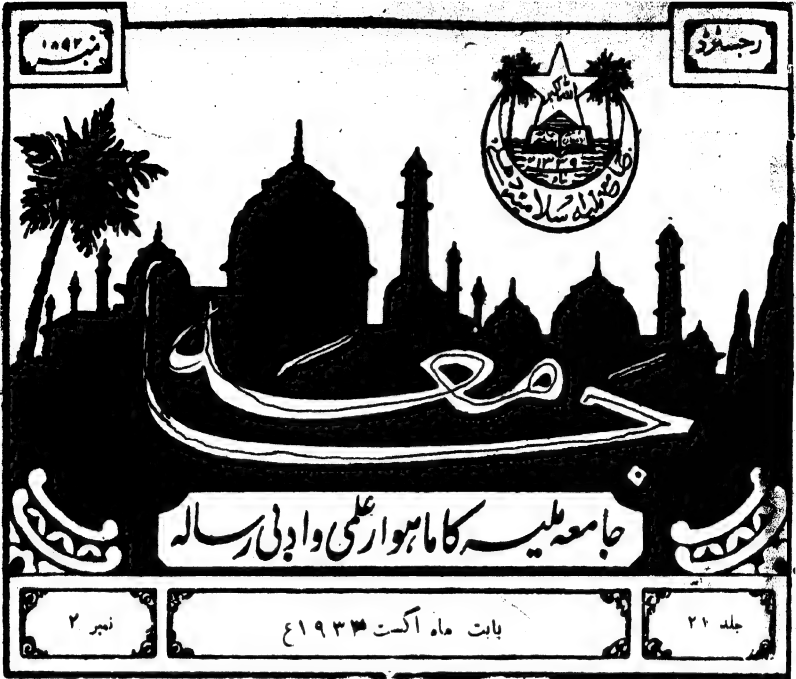 رجسٹرڈ
نمبر ۱۸۹۲
الله اکبر
۱۳۳۹
جامعہ ملیہ اسلامیہ
جامعہ
جامعہ ملیہ کا ماہوار علمی و ادبی رسالہ
جلد ۲۱
بابت ماہ اگست ۱۹۳۳ع
نمبر ۲